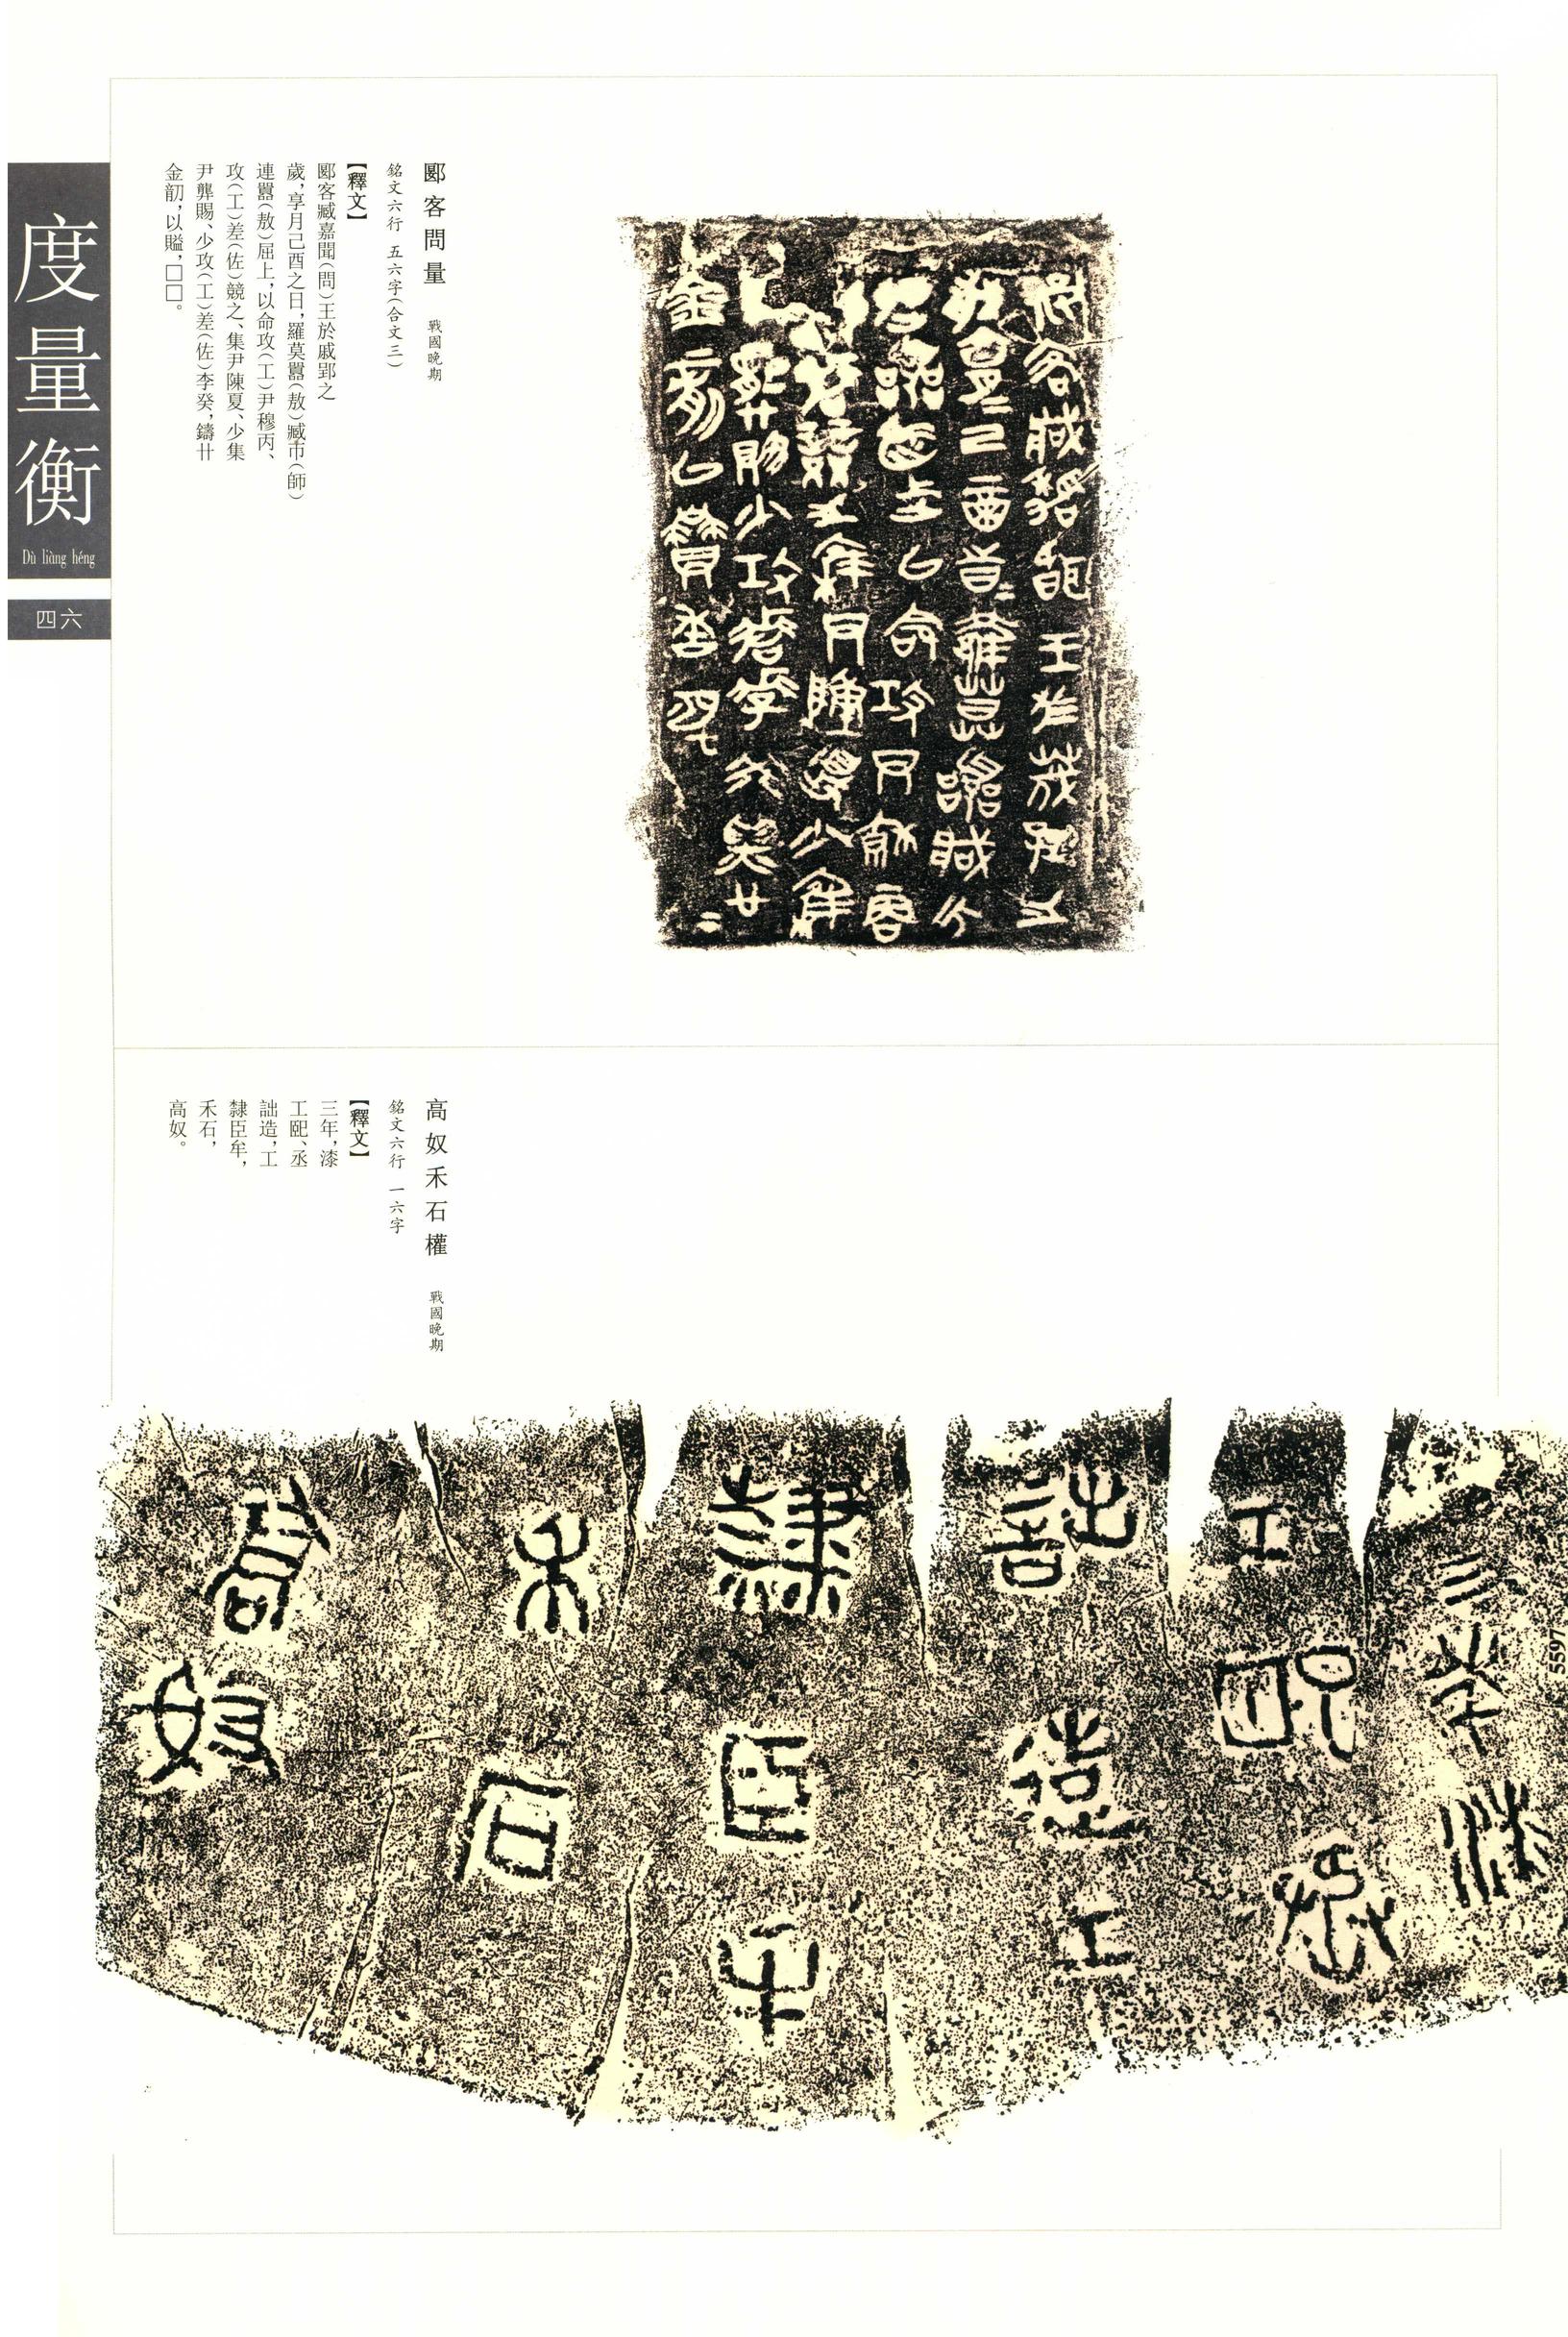 郾客問量 戰國晚期
銘文六行 五六字(合文三)
【釋文】
郾客臧嘉聞(問)王於戚郢之
歲,享月己酉之日,羅莫囂(敖)臧帀(師)
連囂(敖)屈上,以命攻(工)尹穆丙、
攻(工)差(佐)競之、集尹陳夏、少集
尹龏賜、少攻(工)差(佐)李癸,鑄廿
金剆,以賹,□□。
度量衡
Dù liàng héng
四六
高奴禾石權 戰國晚期
銘文六行 一六字
【釋文】
三年,漆
工熙、丞
詘造,工
隸臣牟,
禾石,
高奴。
5597